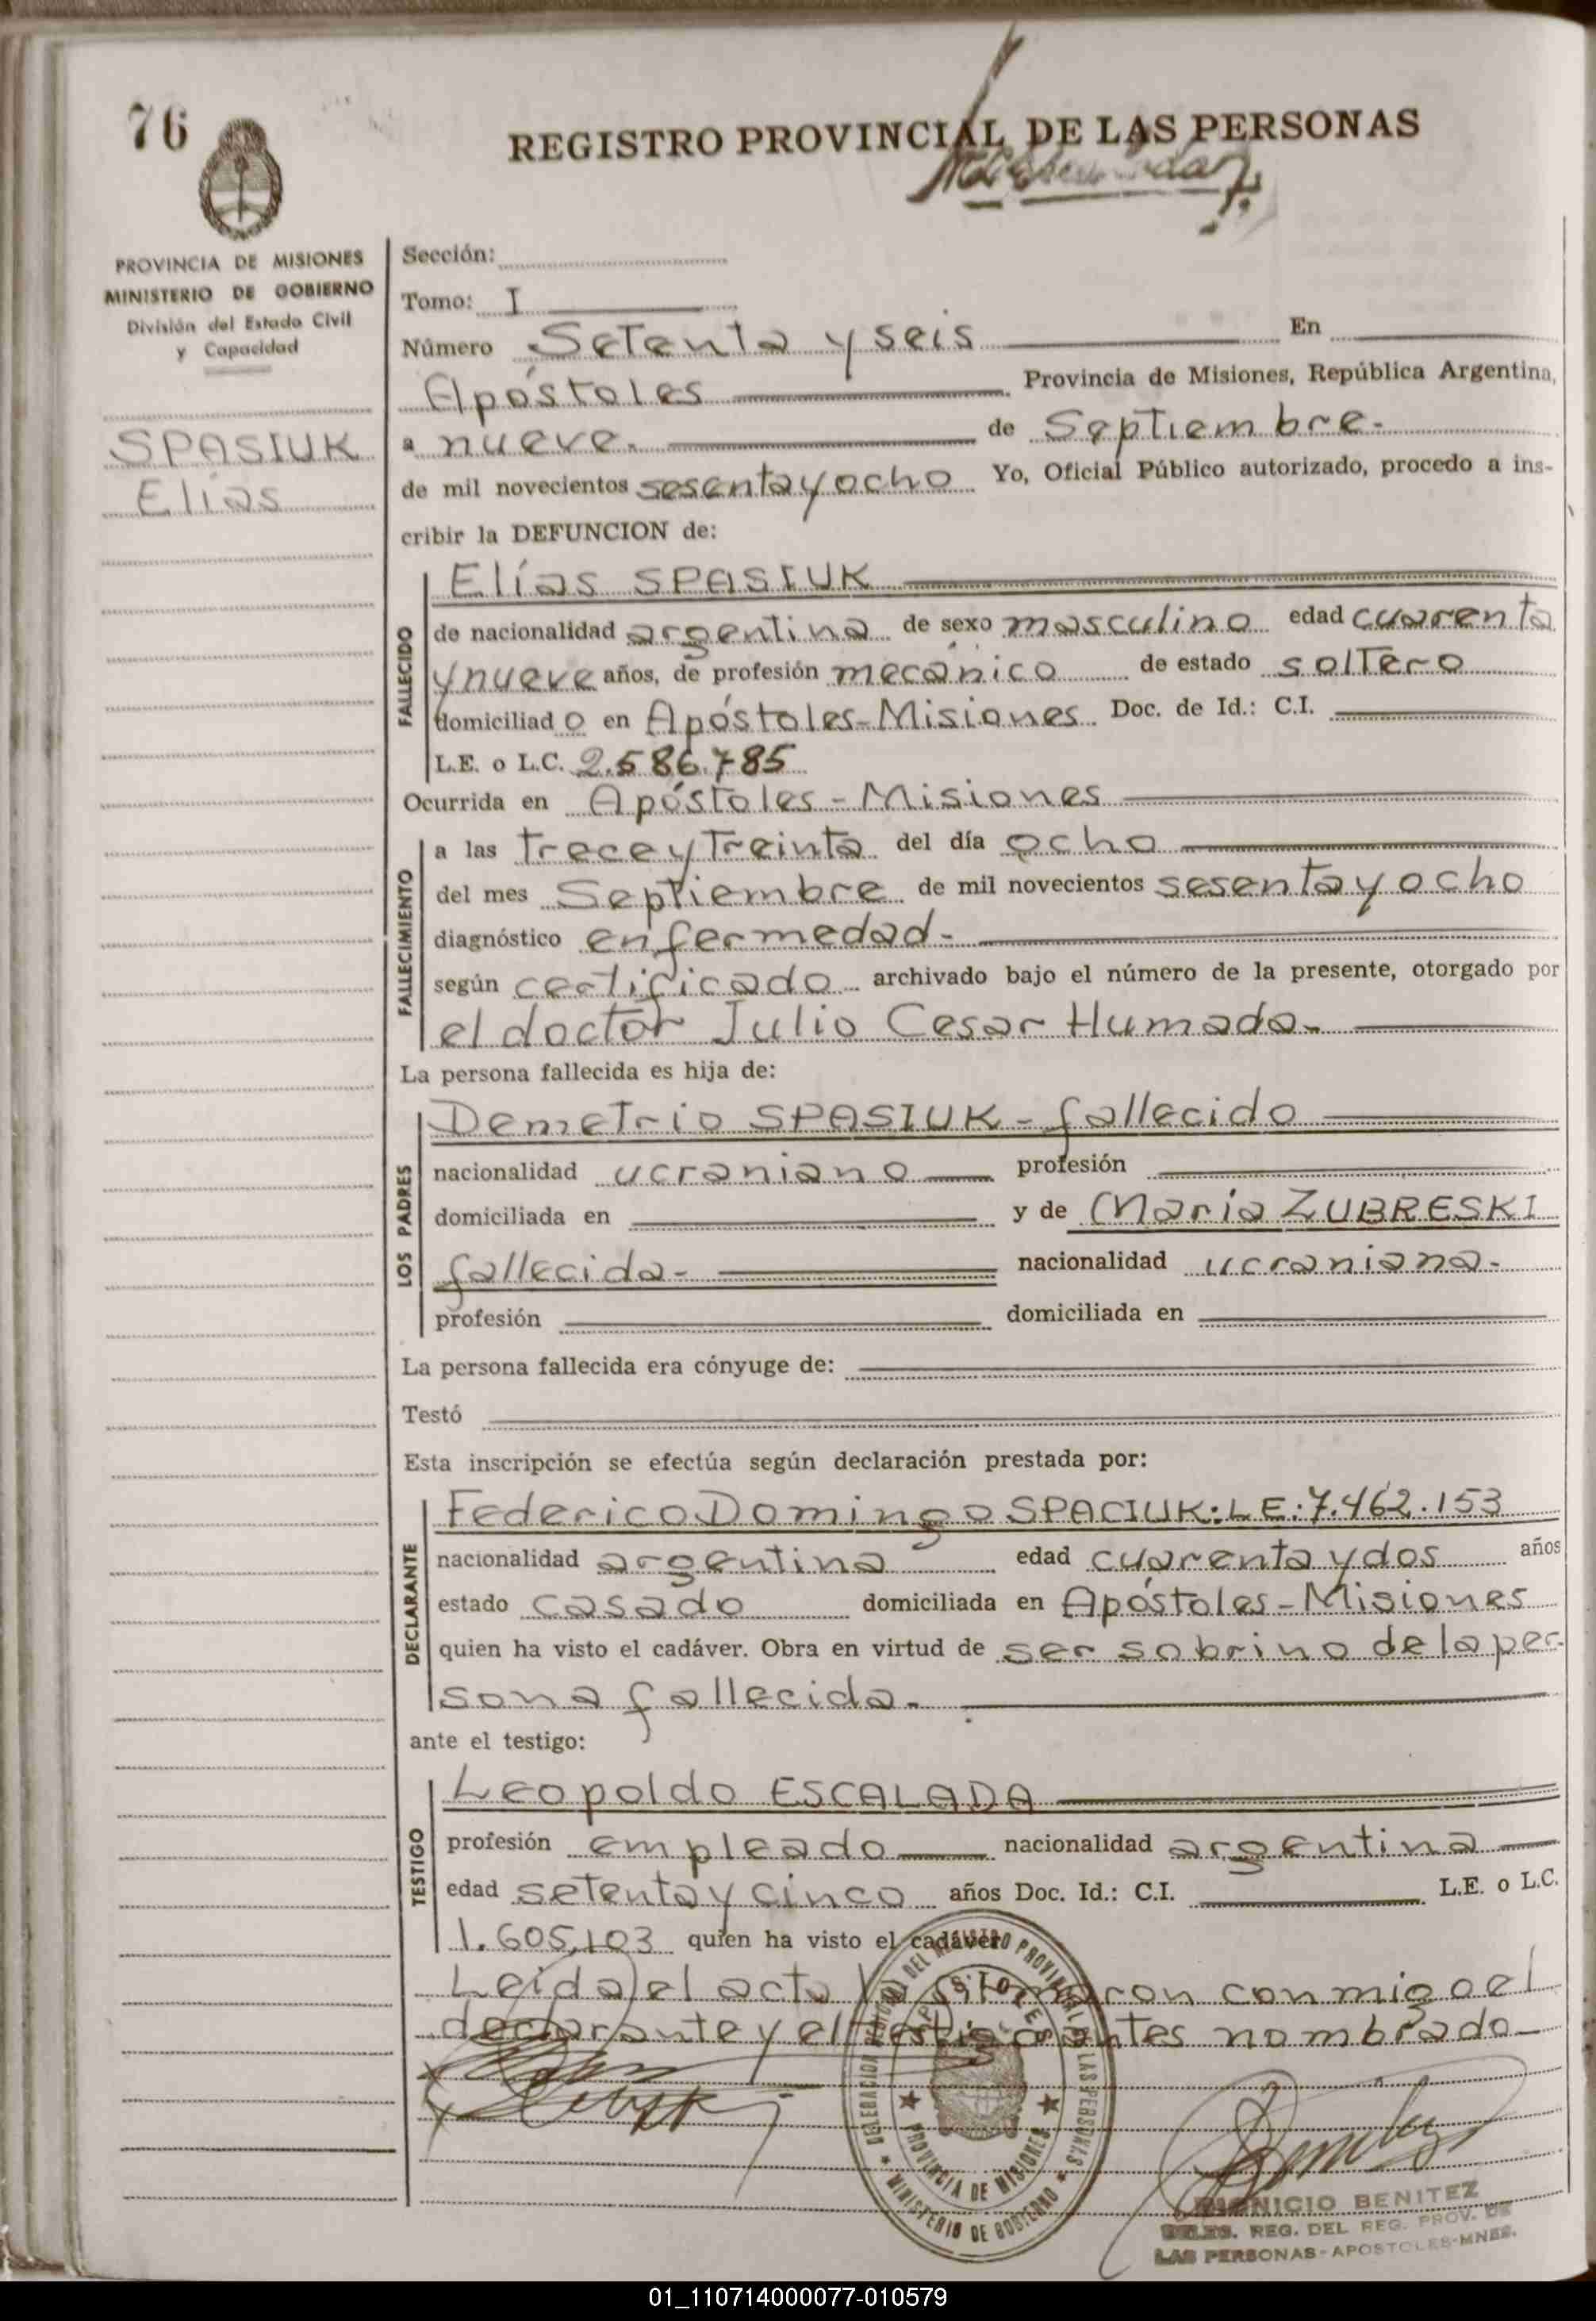 76
REGISTRO PROVINCIAL DE LAS PERSONAS
PROVINCIA DE MISIONES
MINISTERIO DE GOBIERNO
División del Estado Civil
y Capacidad
SPASIUK
Elías
Sección:
Tomo: I
Número Setenta y seis En
Apóstoles Provincia de Misiones, República Argentina,
a nueve. de Septiembre.
de mil novecientos sesenta y ocho Yo, Oficial Público autorizado, procedo a ins-
cribir la DEFUNCION de:
FALLECIDO
Elías SPASIUK
de nacionalidad argentina de sexo masculino edad cuarenta
y nueve años, de profesión mecánico de estado soltero
domiciliado en Apóstoles-Misiones Doc. de Id.: C.I.
L.E. o L.C. 2.586.785
Ocurrida en Apóstoles - Misiones
FALLECIMIENTO
a las trece y Treinta del día ocho
del mes Septiembre de mil novecientos sesenta y ocho
diagnóstico enfermedad-
según certificado archivado bajo el número de la presente, otorgado por
el doctor Julio Cesar Humada.
La persona fallecida es hija de:
LOS PADRES
Demetrio SPASIUK - fallecido
nacionalidad ucraniano profesión
domiciliada en y de Maria ZUBRESKI
fallecida- nacionalidad ucraniana-
profesión domiciliada en
La persona fallecida era cónyuge de:
Testó
Esta inscripción se efectúa según declaración prestada por:
DECLARANTE
Federico Domingo SPACIUK: L E: 7.462.153
nacionalidad argentina edad cuarenta y dos años
estado casado domiciliada en Apóstoles-Misiones
quien ha visto el cadáver. Obra en virtud de ser sobrino de la per-
sona fallecida.
ante el testigo:
TESTIGO
Leopoldo ESCALADA
profesión empleado nacionalidad argentina
edad setenta y cinco años Doc. Id.: C.I. L.E. o L.C.
1.605.103 quien ha visto el cadáver
Leida el acta la firmaron conmigo el
declarante y el testigo antes nombrado
DELEGACION DEL REGISTRO PROVINCIAL DE LAS PERSONAS
APOSTOLES
PROVINCIA DE MISIONES
MINISTERIO DE GOBIERNO
Benitez
DIONICIO BENITEZ
DELEG. REG. DEL REG. PROV. DE
LAS PERSONAS-APOSTOLES-MNES.
01_110714000077-010579